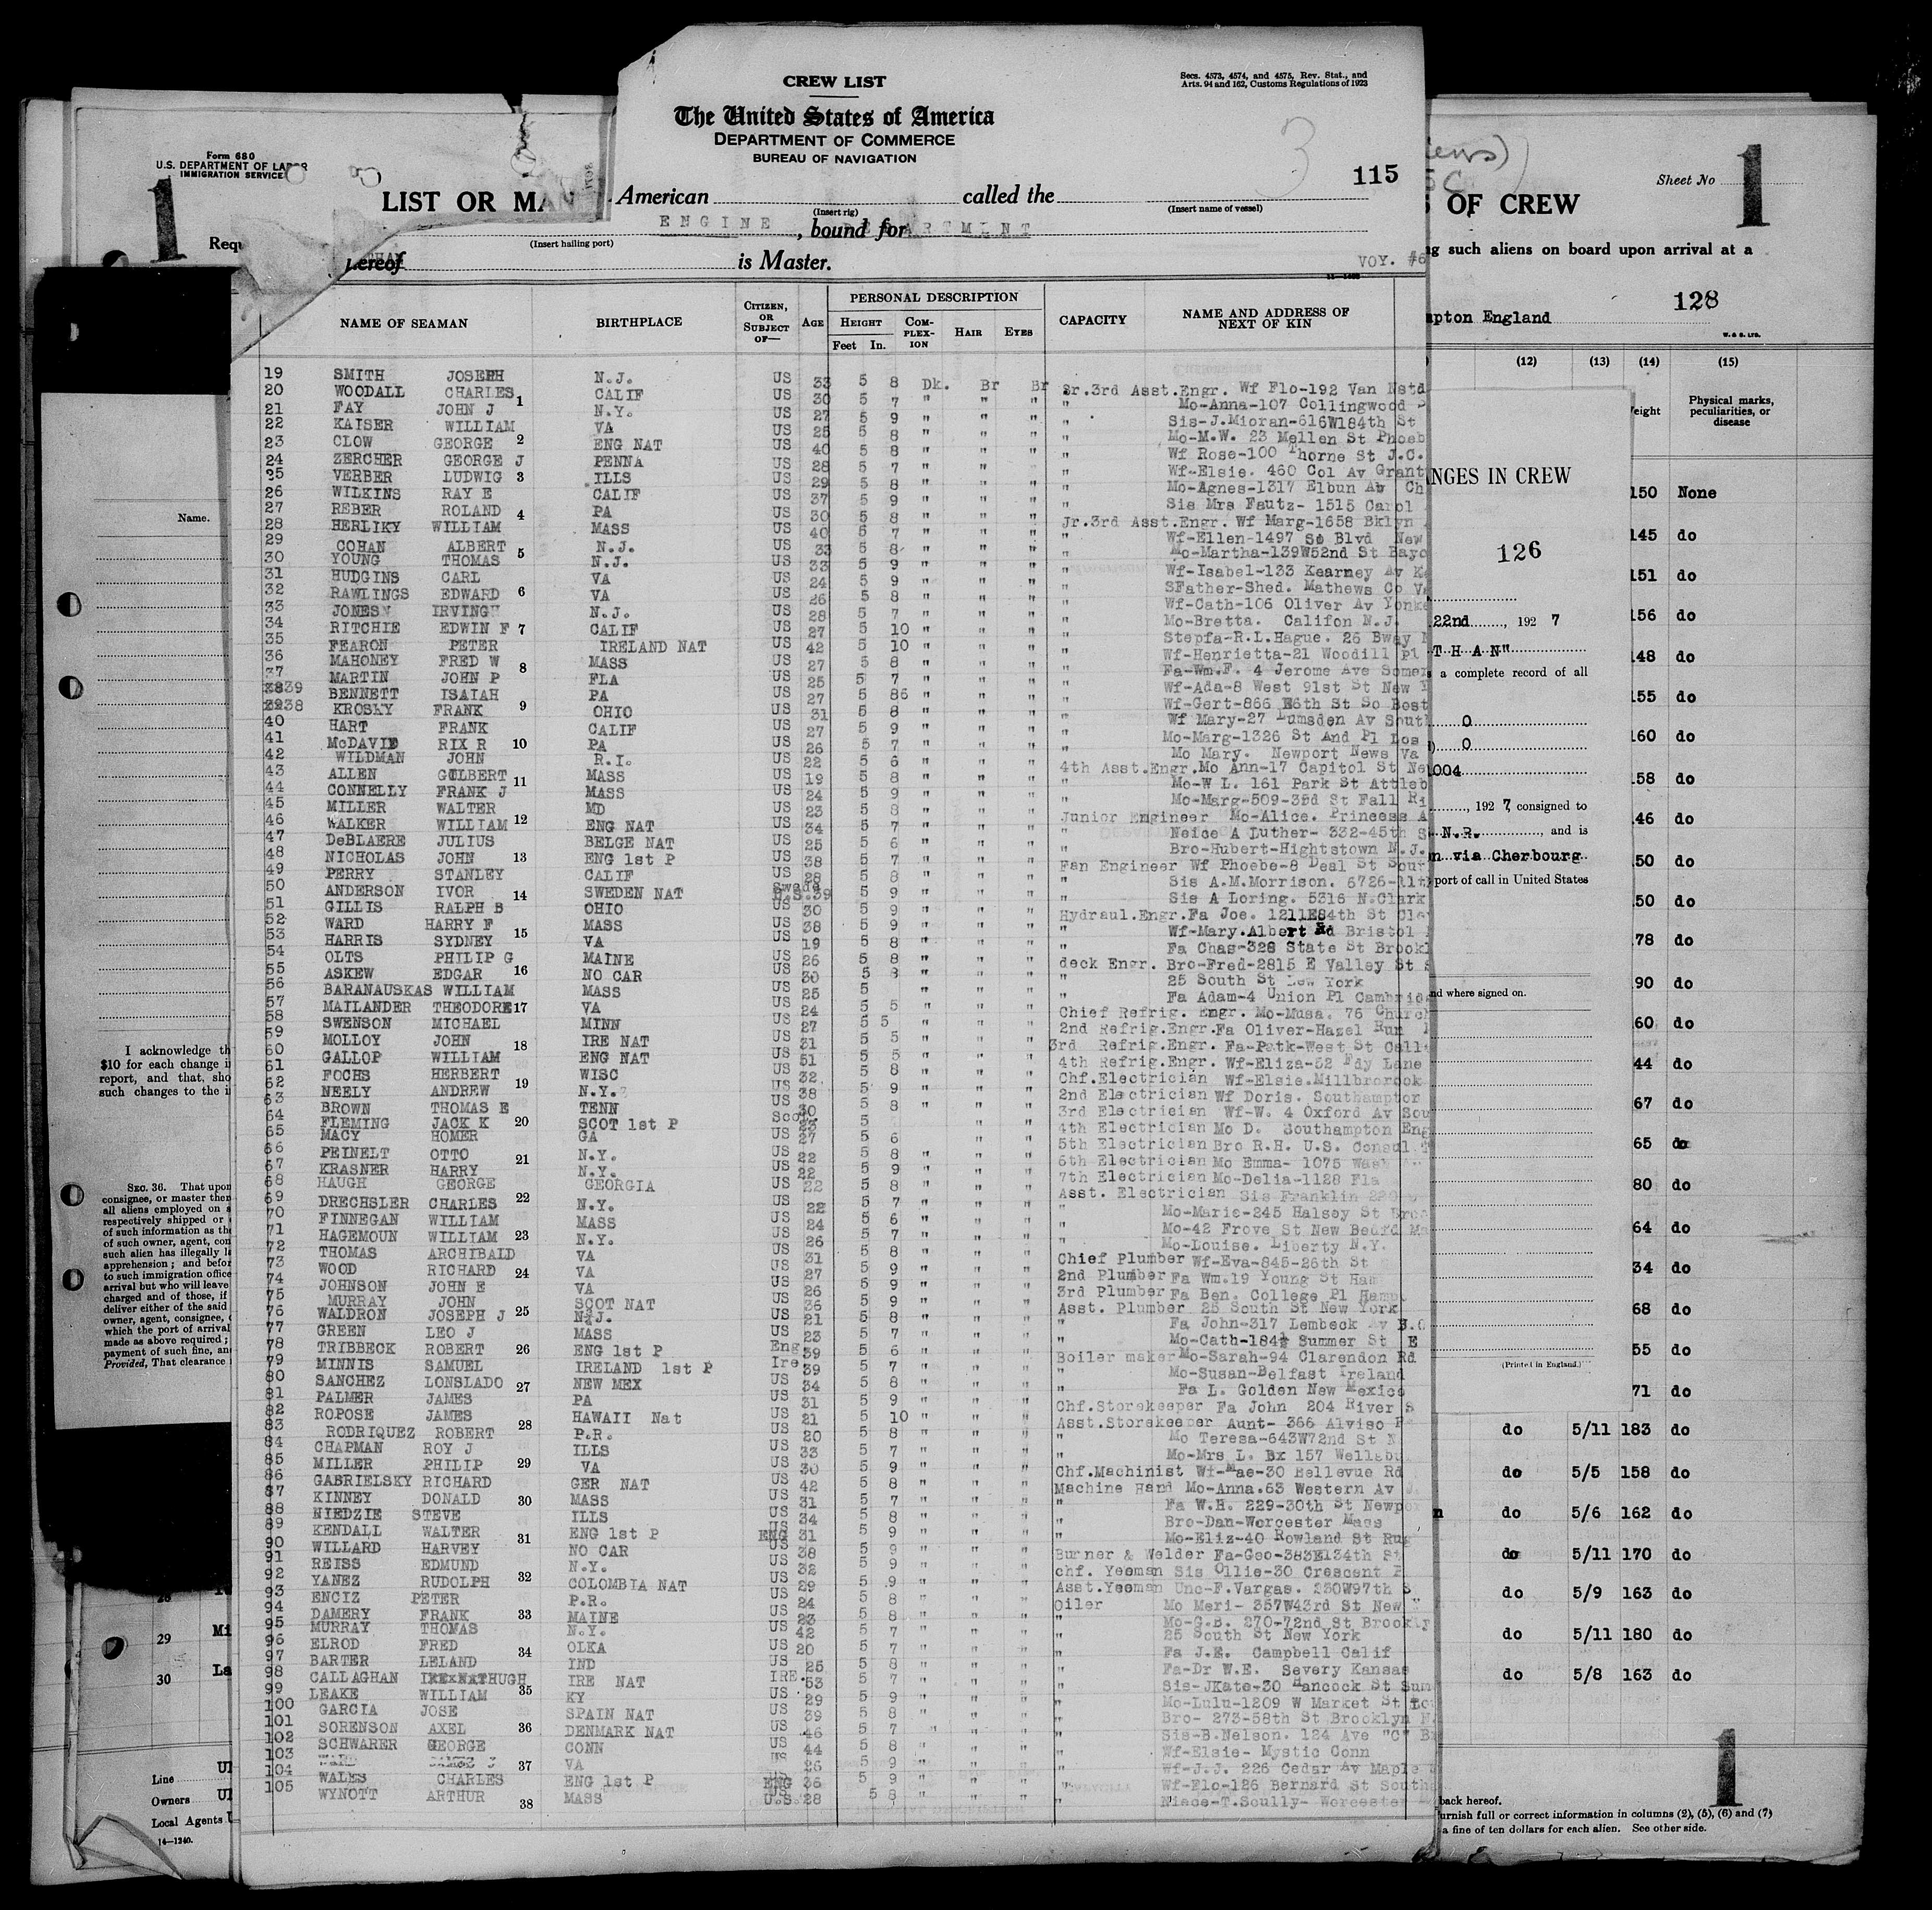 CREW LIST
Secs. 4573, 4574, and 4575, Rev. Stat., and
Arts. 94 and 162, Customs Regulations of 1923
The United States of America
DEPARTMENT OF COMMERCE
BUREAU OF NAVIGATION
3
115
Form 680
U.S. DEPARTMENT OF LABOR
IMMIGRATION SERVICE
1
LIST OR MAN
American called the
(Insert rig) (Insert name of vessel)
ENGINE DEPARTMENT
, bound for
(Insert hailing port)
Requ
hereof is Master.
VOY. #6
Sheet No
1
OF CREW
ng such aliens on board upon arrival at a
128
mpton England
NAME OF SEAMAN BIRTHPLACE CITIZEN, OR SUBJECT OF— AGE PERSONAL DESCRIPTION HEIGHT Feet In. COMPLEXION HAIR EYES CAPACITY NAME AND ADDRESS OF NEXT OF KIN
19 SMITH JOSEPH N.J. US 33 5 8 Dk. Br Br Sr.3rd Asst.Engr. Wf Flo-192 Van Nstd
20 WOODALL CHARLES 1 CALIF US 30 5 7 " " " " Mo-Anna-107 Collingwood
21 FAY JOHN J N.Y. US 27 5 9 " " " " Sis-J.Mioran-616W184th St
22 KAISER WILLIAM VA US 25 5 8 " " " " Mo-M.W. 23 Mellen St Phoeb
23 CLOW GEORGE 2 ENG NAT US 40 5 8 " " " " Wf Rose-100 Thorne St J.C.
24 ZERCHER GEORGE J PENNA US 28 5 7 " " " " Wf-Elsie. 460 Col Av Grant
25 VERBER LUDWIG 3 ILLS US 29 5 8 " " " " Mo-Agnes-1317 Elbun Av Ch
26 WILKINS RAY E CALIF US 37 5 9 " " " " Sis Mrs Fautz- 1515 Carol
27 REBER ROLAND 4 PA US 30 5 8 " " " Jr.3rd Asst.Engr. Wf Marg-1658 Bklyn
28 HERLIKY WILLIAM MASS US 40 5 7 " " " " Wf-Ellen-1497 So Blvd New
29 COHAN ALBERT 5 N.J. US 33 5 8 " " " " Mo-Martha-139W52nd St Bayo
30 YOUNG THOMAS N.J. US 33 5 9 " " " " Wf-Isabel-133 Kearney Av Ke
31 HUDGINS CARL VA US 24 5 9 " " " " SFather-Shed. Mathews Co Va
32 RAWLINGS EDWARD 6 VA US 26 5 8 " " " " Wf-Cath-106 Oliver Av Yonke
33 JONES IRVING N.J. US 28 5 7 " " " " Mo-Bretta. Califon N.J.
34 RITCHIE EDWIN F 7 CALIF US 27 5 10 " " " " Stepfa-R.L.Hague. 26 Bway N
35 FEARON PETER IRELAND NAT US 42 5 10 " " " " Wf-Henrietta-21 Woodill Pl
36 MAHONEY FRED W 8 MASS US 27 5 8 " " " " Fa-Wm.F. 4 Jerome Ave Somer
37 MARTIN JOHN P FLA US 25 5 7 " " " " Wf-Ada-8 West 91st St New Y
39 BENNETT ISAIAH PA US 27 5 86 " " " " Wf-Gert-866 E6th St So Bost
38 KROSKY FRANK 9 OHIO US 31 5 8 " " " " Wf Mary-27 Lumsden Av South
40 HART FRANK CALIF US 27 5 9 " " " " Mo-Marg-1326 St And Pl Los
41 McDAVID RIX R 10 PA US 26 5 7 " " " " Mo Mary. Newport News Va
42 WILDMAN JOHN R.I. US 22 5 6 " " " 4th Asst.Engr.Mo Ann-17 Capitol St Ne
43 ALLEN GILBERT 11 MASS US 19 5 8 " " " " Mo-W L. 161 Park St Attleb
44 CONNELLY FRANK J MASS US 24 5 9 " " " " Mo-Marg-509-35d St Fall Ri
45 MILLER WALTER MD US 23 5 8 " " " Junior Engineer Mo-Alice. Princess A
46 WALKER WILLIAM 12 ENG NAT US 34 5 7 " " " " Neice A Luther- 332-45th S
47 DeBLAERE JULIUS BELGE NAT US 25 5 6 " " " " Bro-Hubert-Hightstown N.J.
48 NICHOLAS JOHN 13 ENG 1st P US 38 5 7 " " " Fan Engineer Wf Phoebe-8 Deal St Sout
49 PERRY STANLEY CALIF US 28 5 8 " " " " Sis A.M.Morrison. 6726-
50 ANDERSON IVOR 14 SWEDEN NAT Swede 39 5 9 " " " " Sis A Loring. 5316 N.Clark
51 GILLIS RALPH B OHIO US 30 5 9 " " " Hydraul.Engr.Fa Joe. 1211E84th St Cle
52 WARD HARRY F MASS US 38 5 9 " " " " Wf-Mary.Albert Rd Bristol
53 HARRIS SYDNEY 15 VA US 19 5 8 " " " " Fa Chas-328 State St Brookl
54 OLTS PHILIP G MAINE US 26 5 8 " " " deck Engr. Bro-Fred-2815 E Valley St S
55 ASKEW EDGAR 16 NO CAR US 30 5 8 " " " " 25 South St New York
56 BARANAUSKAS WILLIAM MASS US 25 5 " " " Fa Adam-4 Union Pl Cambrid
57 MAILANDER THEODORE 17 VA US 24 5 5 " " " Chief Refrig. Engr. Mo-Musa. 76 Church
58 SWENSON MICHAEL MINN US 27 5 5 " " " 2nd Refrig.Engr.Fa Oliver-Hazel Run
59 MOLLOY JOHN 18 IRE NAT US 31 5 5 " " " 3rd Refrig.Engr. Fa-Patk-West St Call
60 GALLOP WILLIAM ENG NAT US 51 5 5 " " " 4th Refrig.Engr. Wf-Eliza-52 Fdy Lane
61 FOCHS HERBERT WISC US 32 5 8 " " " Chf.Electrician Wf-Elsie.Millbrorook
62 NEELY ANDREW 19 N.Y. US 38 5 9 " " " 2nd Electrician Wf Doris. Southampton
63 BROWN THOMAS E TENN US 30 5 8 " " " 3rd Electrician Wf-W. 4 Oxford Av Sou
64 FLEMING JACK K 20 SCOT 1st P Scot. 23 5 " " 4th Electrician Mo D. Southampton Eng
65 MACY HOMER GA US 27 5 6 " " 5th Electrician Bro R.H. U.S. Consul
66 PEINELT OTTO 21 N.Y. US 22 5 8 " " " 6th Electrician Mo Emma- 1075 Wash
67 KRASNER HARRY N.Y. US 22 5 9 " " " 7th Electrician Mo-Delia-1128 Fla
68 HAUGH GEORGE GEORGIA US 22 5 8 " " " Asst. Electrician Sis Franklin
69 DRECHSLER CHARLES 22 N.Y. US 22 5 7 " " " " Mo-Marie-245 Halsey St Broo
70 FINNEGAN WILLIAM MASS US 24 5 6 " " " " Mo-42 Frove St New Bedfd Ma
71 HAGEMOUN WILLIAM 23 N.Y. US 26 5 7 " " " " Mo-Louise. Liberty N.Y.
72 THOMAS ARCHIBALD VA US 31 5 8 " " " Chief Plumber Wf-Eva-845-26th St
73 WOOD RICHARD 24 VA US 27 5 9 " " " 2nd Plumber Fa Wm.19 Young St Ham
74 JOHNSON JOHN E VA US 26 5 9 " " " 3rd Plumber Fa Ben. College Pl Hamp
75 MURRAY JOHN SCOT NAT US 36 5 9 " " " Asst. Plumber 25 South St New York
76 WALDRON JOSEPH J 25 N.J. US 21 5 8 " " " " Fa John-317 Lembeck Av
77 GREEN LEO J MASS US 23 5 7 " " " " Mo-Cath-184½ Summer St E
78 TRIBBECK ROBERT 26 ENG 1st P Eng 39 5 6 " " " Boiler maker Mo-Sarah-94 Clarendon Rd
79 MINNIS SAMUEL IRELAND 1st P Ire 39 5 7 " " " " Mo-Susan-Belfast Ireland
80 SANCHEZ LONSLADO 27 NEW MEX US 34 5 8 " " " " Fa L. Golden New Mexico
81 PALMER JAMES PA US 31 5 9 " " " Chf.Storekeeper Fa John 204 River S
82 ROPOSE JAMES HAWAII Nat US 21 5 10 " " " Asst.Storekeeper Aunt- 366 Alviso
83 RODRIQUEZ ROBERT 28 P.R. US 20 5 8 " " " " Mo Teresa-643W72nd St N
84 CHAPMAN ROY J ILLS US 33 5 7 " " " " Mo-Mrs L. Bx 157 Wellsbu
85 MILLER PHILIP 29 VA US 30 5 9 " " " Chf.Machinist Wf-Mae-30 Bellevue Rd
86 GABRIELSKY RICHARD GER NAT US 42 5 8 " " " Machine Hand Mo-Anna.63 Western Av J.
87 KINNEY DONALD 30 MASS US 31 5 7 " " " " Fa W.H. 229-30th St Newpo
88 NIEDZIE STEVE ILLS US 34 5 8 " " " " Bro-Dan-Worcester Mass
89 KENDALL WALTER 31 ENG 1st P ENG 31 5 9 " " " " Mo-Eliz-40 Rowland St Rug
90 WILLARD HARVEY NO CAR US 38 5 9 " " " Burner & Welder Fa-Geo-383E134th St
91 REISS EDMUND N.Y. US 32 5 9 " " " chf. Yeoman Sis Ollie-30 Crescent P
92 YANEZ RUDOLPH 32 COLOMBIA NAT US 29 5 9 " " " Asst.Yeoman Unc-F.Vargas. 230W97th S
93 ENCIZ PETER P.R. US 24 5 8 " " " Oiler Mo Meri- 357W43rd St New
94 DAMERY FRANK 33 MAINE US 23 5 8 " " " " Mo-G.B. 270-72nd St Brookly
95 MURRAY THOMAS N.Y. US 42 5 7 " " " " 25 South St New York
96 ELROD FRED 34 OLKA US 20 5 7 " " " " Fa J.E. Campbell Calif
97 BARTER LELAND IND US 25 5 8 " " " " Fa-Dr W.E. Severy Kansas
98 CALLAGHAN HUGH IRE NAT IRE. 53 5 7 " " " " Sis-JKate-30 Hancock St Sum
99 LEAKE WILLIAM 35 KY US 29 5 9 " " " " Mo-Lulu-1209 W Market St Lo
100 GARCIA JOSE SPAIN NAT US 39 5 8 " " " " Bro- 273-58th St Brooklyn N.
101 SORENSON AXEL 36 DENMARK NAT US 46 5 7 " " " " Sis-B.Nelson. 124 Ave "C" B
102 SCHWARER GEORGE CONN US 44 5 8 " " " " Wf-Elsie- Mystic Conn
103 37 VA US 26 5 9 " " " " Wf-J.J. 226 Cedar Av Maple
104 WALES CHARLES ENG 1st P ENG 36 5 9 " " " " Wf-Flo-126 Bernard St Southa
105 WYNOTT ARTHUR 38 MASS U.S 28 5 8 " " " Niece-T.Scully- Worcester
Name.
I acknowledge th
$10 for each change i
report, and that, sho
such changes to the i
SEC. 36. That upon
consignee, or master ther
all aliens employed on s
respectively shipped or
of such information as the
of such owner, agent, con
such alien has illegally l
apprehension ; and befor
to such immigration office
arrival but who will leave
charged and of those, if
deliver either of the said
owner, agent, consignee,
which the port of arrival
made as above required ;
payment of such fine, an
Provided, That clearance
29 Mi
30 La
Line
Owners
Local Agents
14—1240.
W. & S. LTD.
(12) (13) (14) (15)
eight
Physical marks, peculiarities, or disease
NGES IN CREW
126
22nd , 192 7
T H A N"
s a complete record of all
0
0
1004
, 192 7 consigned to
N.R. , and is
n via Cherbourg
port of call in United States
nd where signed on.
(Printed in England.)
150 None
145 do
151 do
156 do
148 do
155 do
160 do
58 do
46 do
50 do
50 do
78 do
90 do
60 do
44 do
67 do
65 do
80 do
64 do
34 do
68 do
55 do
71 do
do 5/11 183 do
do 5/5 158 do
do 5/6 162 do
do 5/11 170 do
do 5/9 163 do
do 5/11 180 do
do 5/8 163 do
1
back hereof.
urnish full or correct information in columns (2), (5), (6) and (7)
a fine of ten dollars for each alien. See other side.